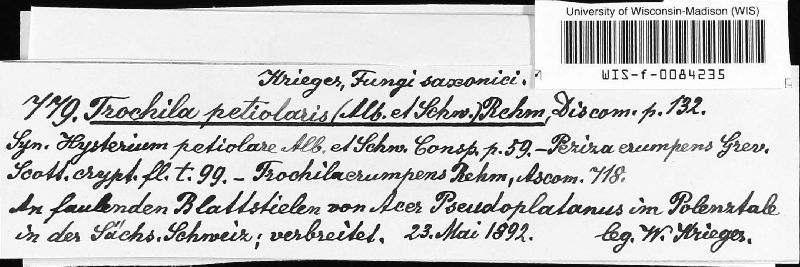 University of Wisconsin-Madison (WIS)
WIS-f-0084235
Krieger, Fungi saxonici.
779. Trochila petiolaris (Alb. et Schw.) Rehm, Discom. p. 132.
Syn. Hysterium petiolare Alb. et Schw. Consp. p. 59. – Peziza erumpens Grev.
Scott. crypt. fl. t. 99. – Trochila erumpens Rehm, Ascom. 718.
An faulenden Blattstielen von Acer Pseudoplatanus im Polenztale
in der Sächs. Schweiz; verbreitet. 23. Mai 1892. leg. W. Krieger.